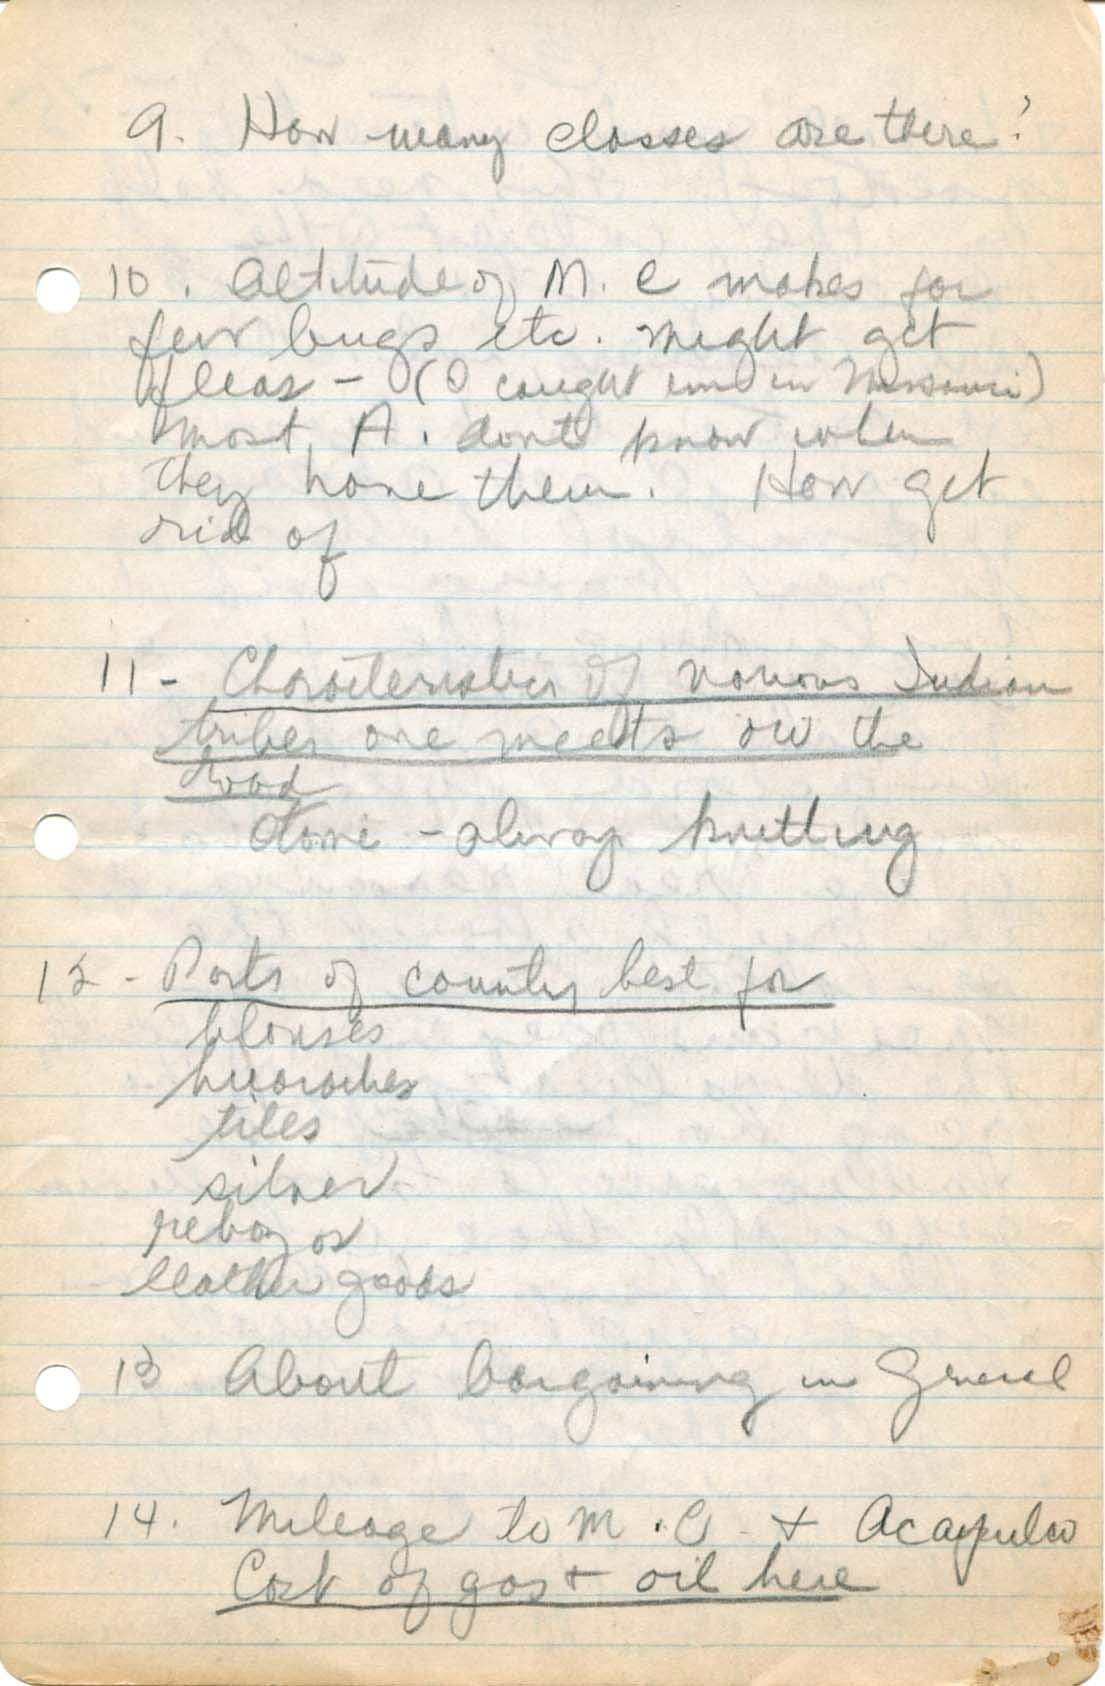 9. How many classes are there?
10. Altitude of M. C makes for
few bugs etc. might get
fleas - (I caught one in Missouri)
most A. dont know when
they have them. How get
rid of
11- Characteristics of various Indian
tribes one meets on the
road
- always knitting
12- Parts of country best for
blouses
huaraches
tiles
silver
rebozos
leather goods
13 About bargaining in General
14. Mileage to M.C. + Acapulco
Cost of gas + oil here